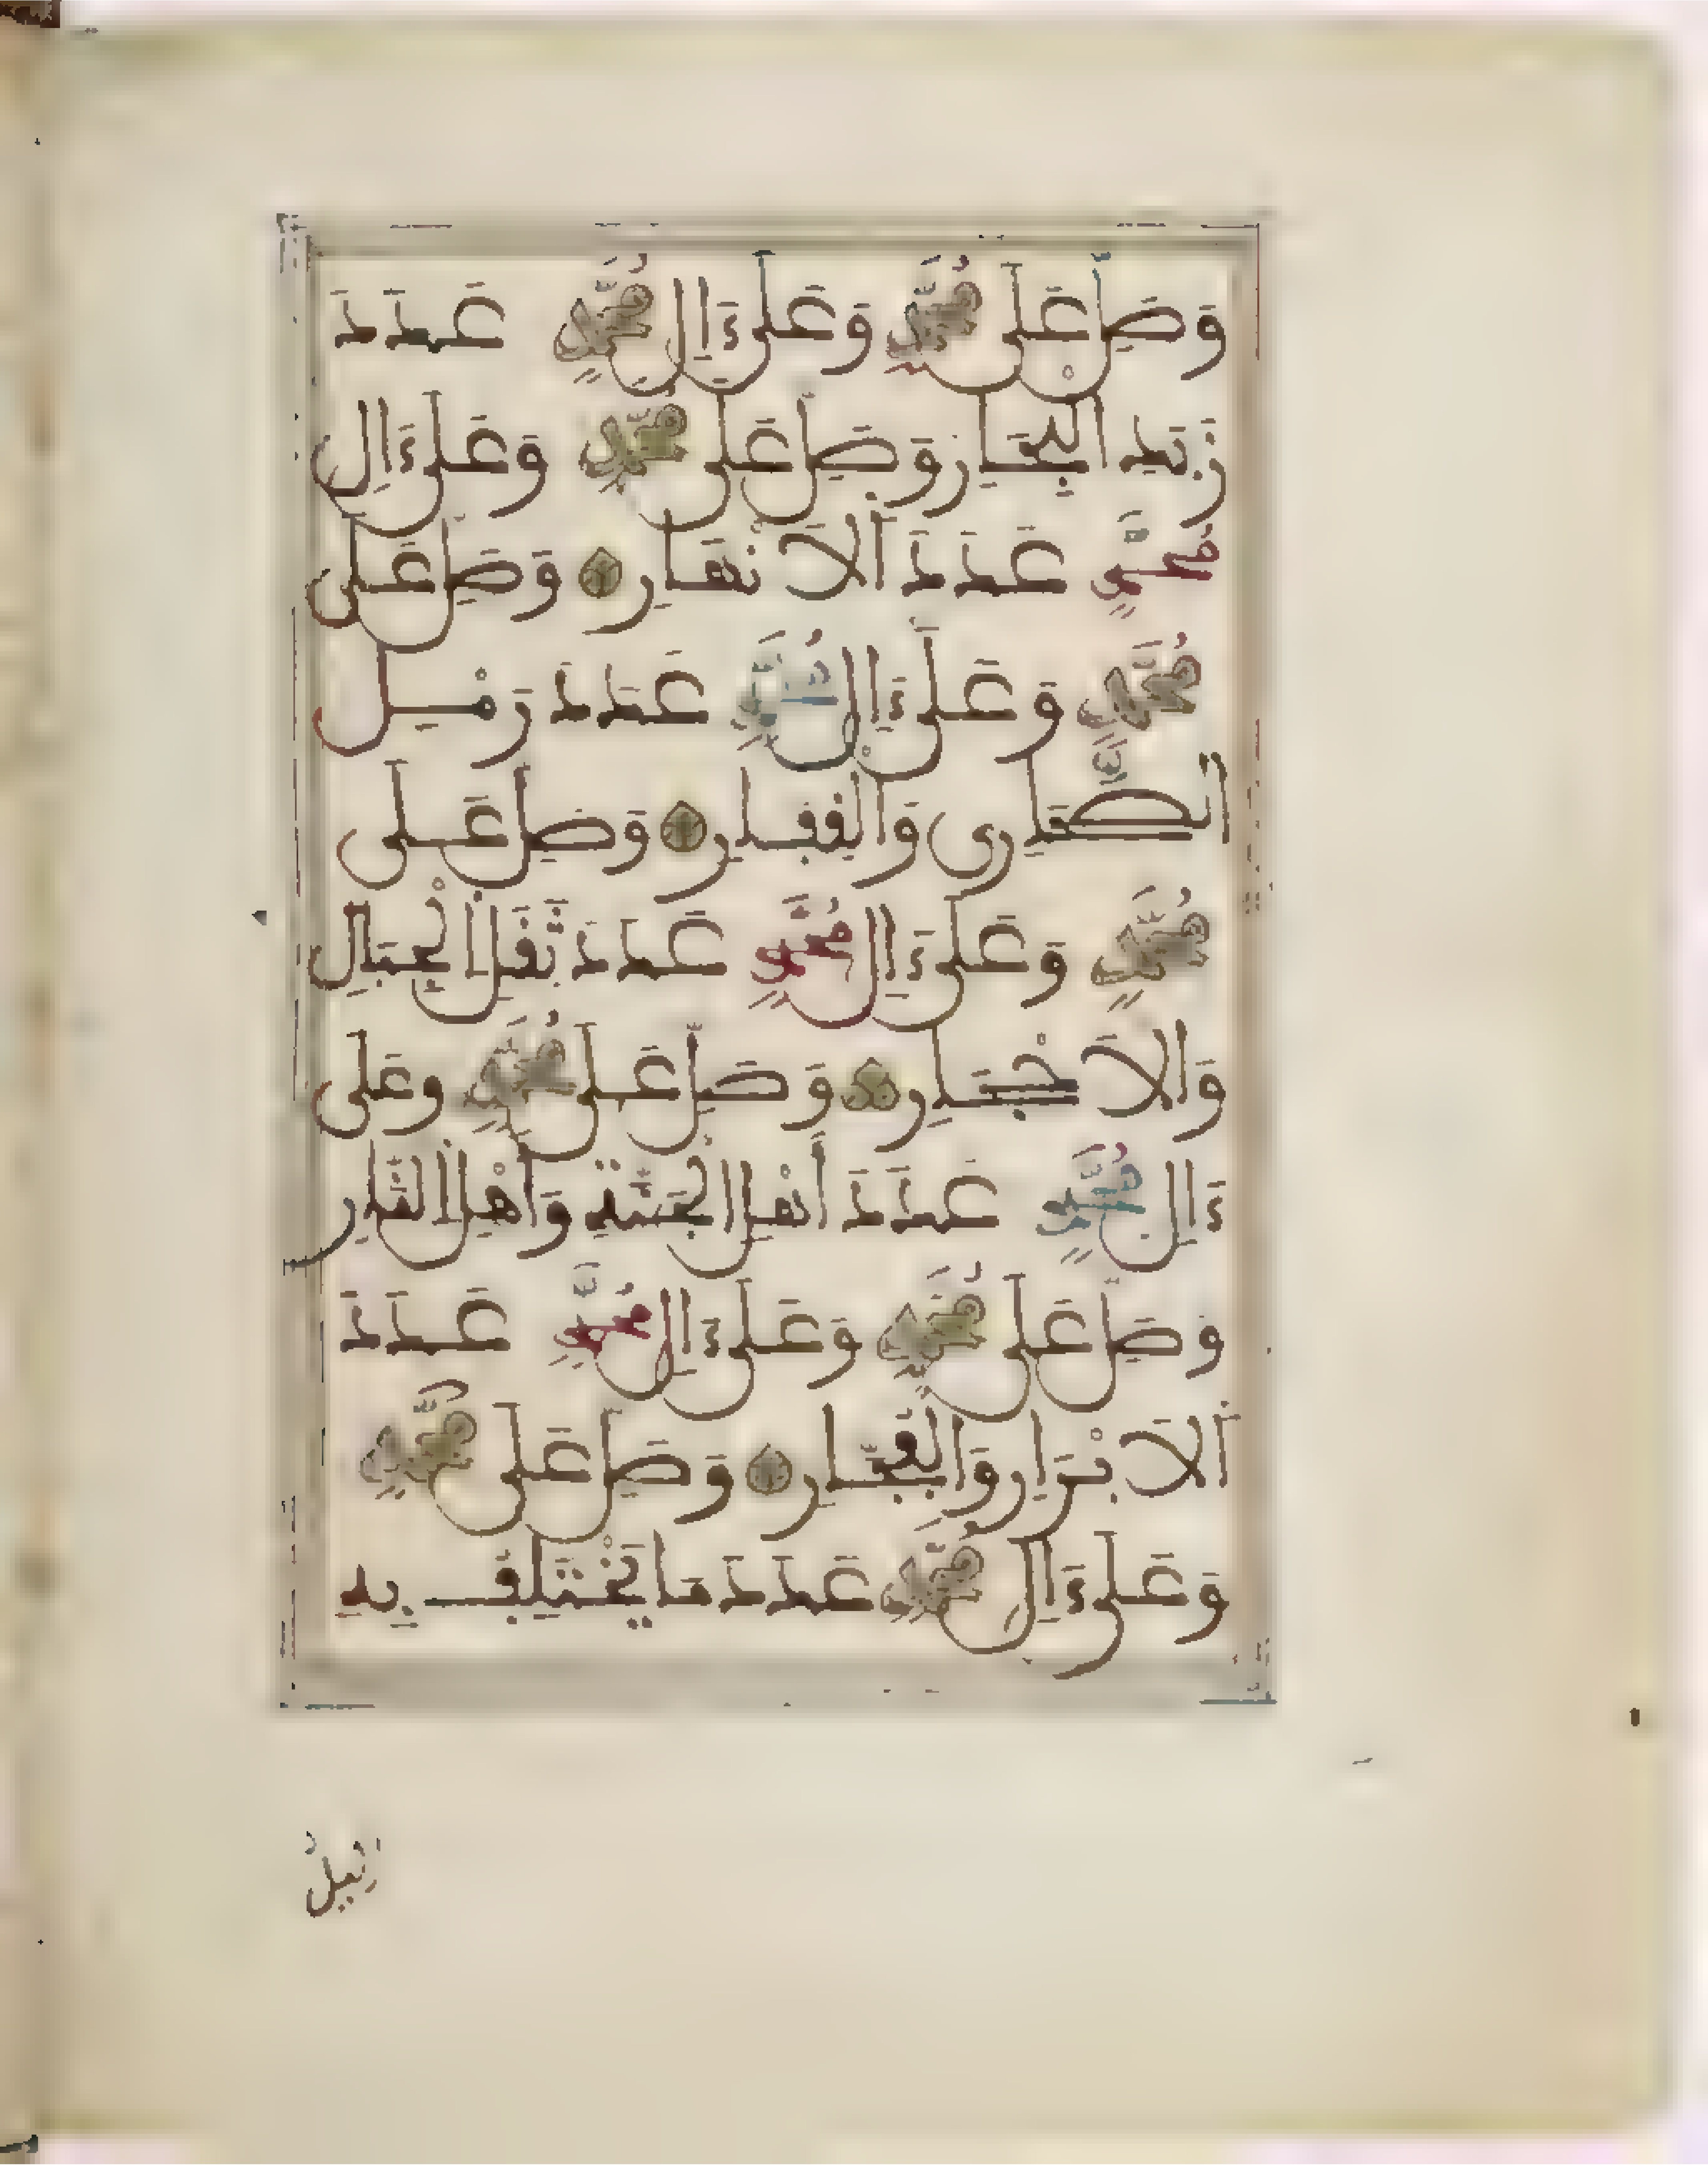 وَصَلِّ عَلَى مُحَمَّدٍ وَعَلَى ءَالِ مُحَمَّدٍ عَدَدَ
زَبَدِ الْبِحَارِ وَصَلِّ عَلَى مُحَمَّدٍ وَعَلَى ءَالِ
مُحَمَّدٍ عَدَدَ الَانْهَارِ وَصَلِّ عَلَى
مُحَمَّدٍ وَعَلَى ءَالِ مُحَمَّدٍ عَدَدَ رَمْلِ
الصَّحَارِى وَالْقِفَارِ وَصَلِّ عَلَى
مُحَمَّدٍ وَعَلَى ءَالِ مُحَمَّدٍ عَدَدَ ثِقَلِ الْجِبَالِ
وَالَاحْجَارِ وَصَلِّ عَلَى مُحَمَّدٍ وعَلَى
ءَالِ مُحَمَّدٍ عَدَدَ أَهْلِ الْجَنَّةِ وَأَهْلِ النَّارِ
وَصَلِّ عَلَى مُحَمَّدٍ وَعَلَى ءَالِ مُحَمَّدٍ عَدَدَ
الَابْرَارِ وَالْفُجَّارِ وَصَلِّ عَلَى مُحَمَّدٍ
وَعَلَى ءَالِ مُحَمَّدٍ عَدَدَ مَا يَخْتَلِفُ بِهِ